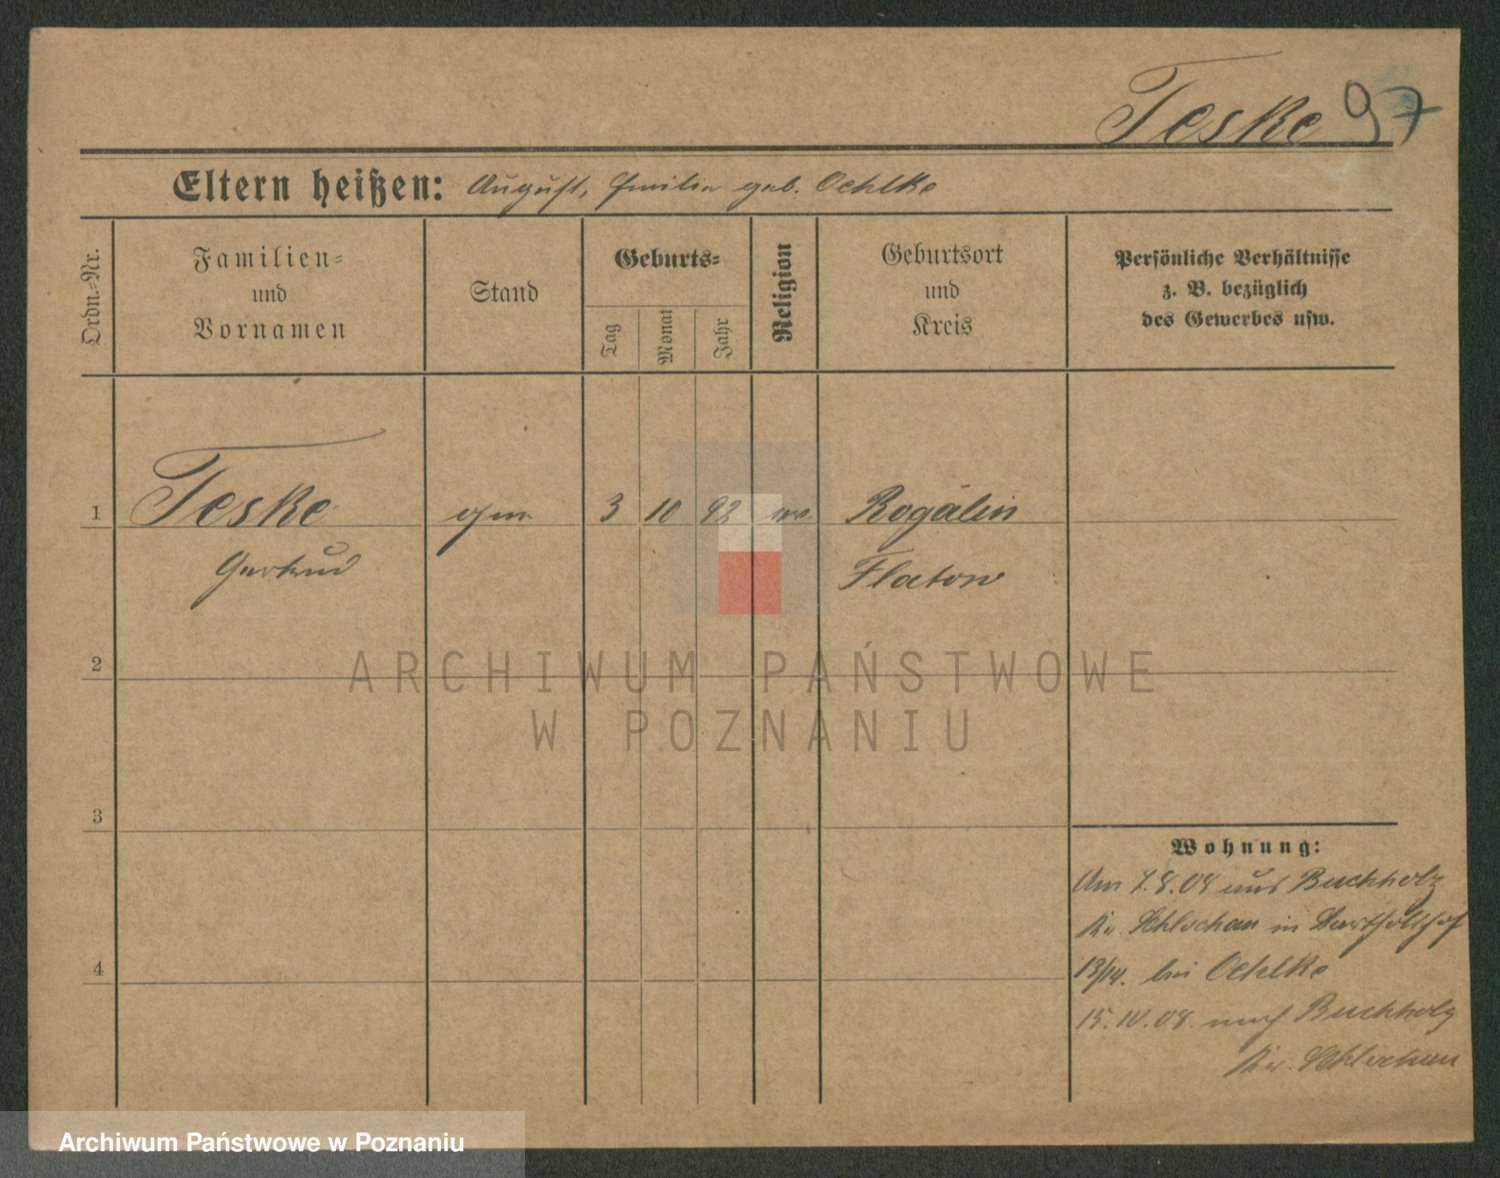 Teske 97
Eltern heißen: August, Emilie geb. Oehlke
Ordn.-Nr.
Familien- und Vornamen
Stand
Geburts-
Tag
Monat
Jahr
Religion
Geburtsort und Kreis
Persönliche Verhältnisse
z. B. bezüglich
des Gewerbes usw.
1 Teske 3 10 92 Rogalin
Gertrud Flatow
2
3
4
Wohnung:
Am 7.8.08 aus Buchholz
Kr. Schlochau in
13/14. bei Oehlke
15.10.08. nach Buchholz
Kr. Schlochau
ARCHIWUM PAŃSTWOWE
W POZNANIU
Archiwum Państwowe w Poznaniu